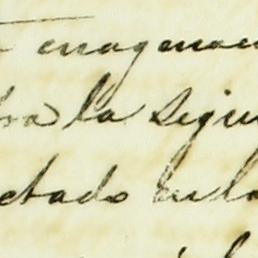 enagenac
ora la sigui
ctado en la